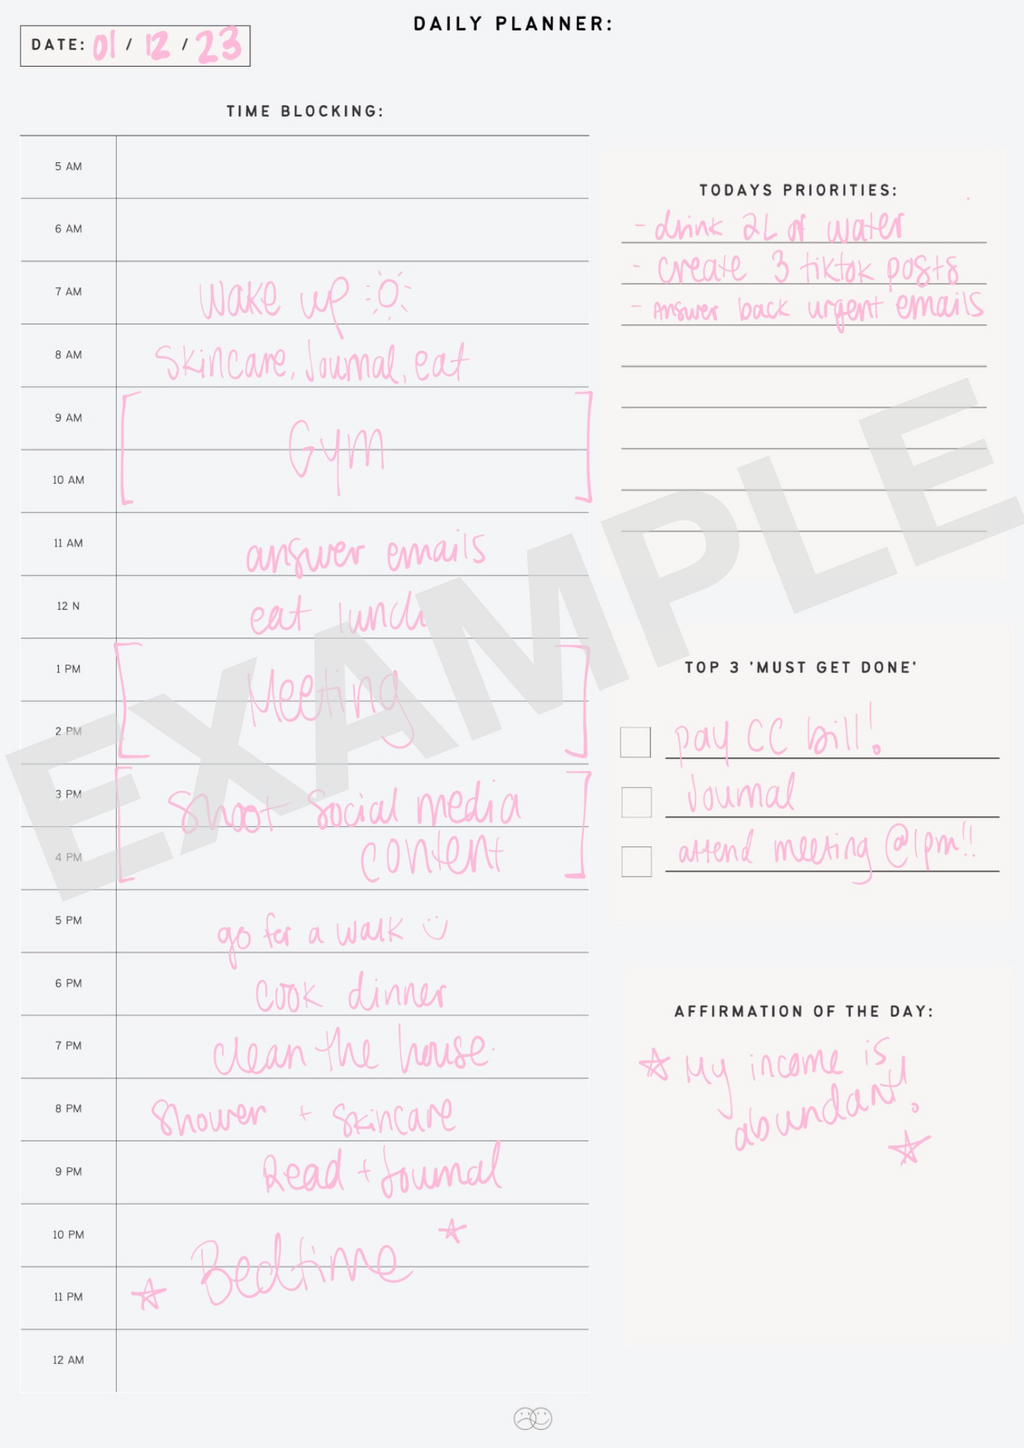 DAILY PLANNER:
DATE: 01 / 12 / 23
TIME BLOCKING:
5 AM
6 AM
7 AM wake up
8 AM skincare, Journal, eat
9 AM
Gym
10 AM
11 AM answer emails
12 N eat lunch
1 PM
Meeting
2 PM
3 PM Shoot social media
4 PM content
5 PM go for a walk
6 PM cook dinner
7 PM clean the house.
8 PM Shower + skincare
9 PM Read + Journal
10 PM
Bedtime
11 PM
12 AM
TODAYS PRIORITIES:
- drink 2L of water
- create 3 tiktok posts
- Answer back urgent emails
TOP 3 'MUST GET DONE'
pay CC bill!
Journal
attend meeting @1pm!!
AFFIRMATION OF THE DAY:
My income is
abundant!
EXAMPLE